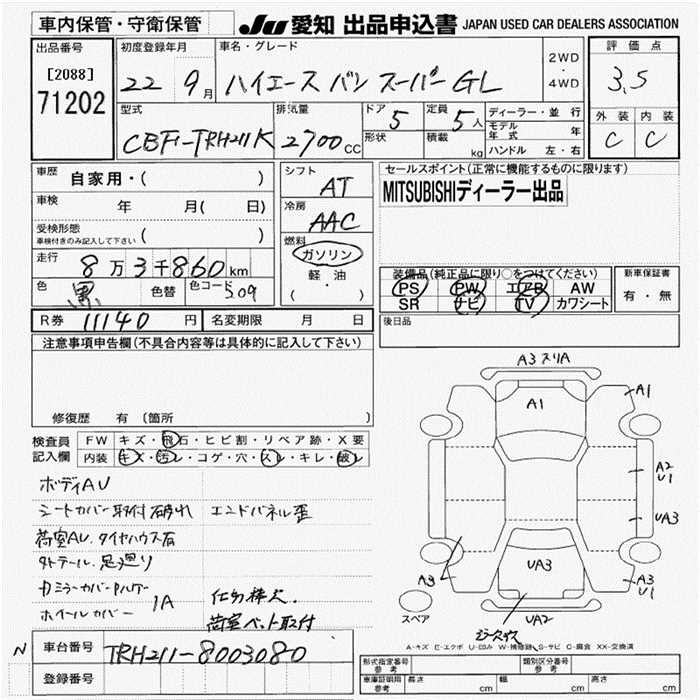 車内保管・守衛保管
JU 愛知 出品申込書 JAPAN USED CAR DEALERS ASSOCIATION
出品番号
[2088]
71202
初度登録年月
22 9月
車名・グレード
ハイエース バン スーパーGL
2WD
・
4WD
評価点
3.5
外装 内装
C C
型式
CBF-TRH211K
排気量
2700cc
ドア 5
形状
定員 5人
積載 kg
ディーラー・並行
モデル年式 年
ハンドル 左・右
車歴 自家用・( )
車検 年 月( 日)
受検形態
車検付きのみ記入して下さい ( )
走行 8万3千860km
色 黒 色替 色コード 209
シフト
AT
冷房
AAC
燃料
ガソリン
軽・油
( ・ )
セールスポイント(正常に機能するものに限ります)
MITSUBISHIディーラー出品
装備品(純正品に限り○をつけてください)
PS PW エアB AW
SR ナビ TV カワシート
新車保証書
有・無
R券 11140円 名変期限 月 日
後日品
注意事項申告欄(不具合内容等は具体的に記入して下さい)
修復歴 有 (箇所 )
検査員記入欄
FW キズ・飛石・ヒビ割・リペア跡・X要
内装 キズ・汚レ・コゲ・穴・スレ・キレ・破レ
ボディAU
シートカバー取付 破れ エンドパネル歪
荷室AU. タイヤハウス右
タトテール. 足廻り
カミラーカバー
ホイールカバー 1A
仕切棒欠.
荷室ベット取付
A3 スリA
A1
A1
A2
U1
UA3
A3
UA3
A3
U1
UA2
スペア
A-キズ E-エクボ U-凹み W-補修跡 S-サビ C-腐食 XX-交換済
N
車台番号 TRH211-8003080
登録番号
形式指定番号
参考
類別区分番号
参考
車庫証明用
参考
長さ cm 幅 cm 高さ cm